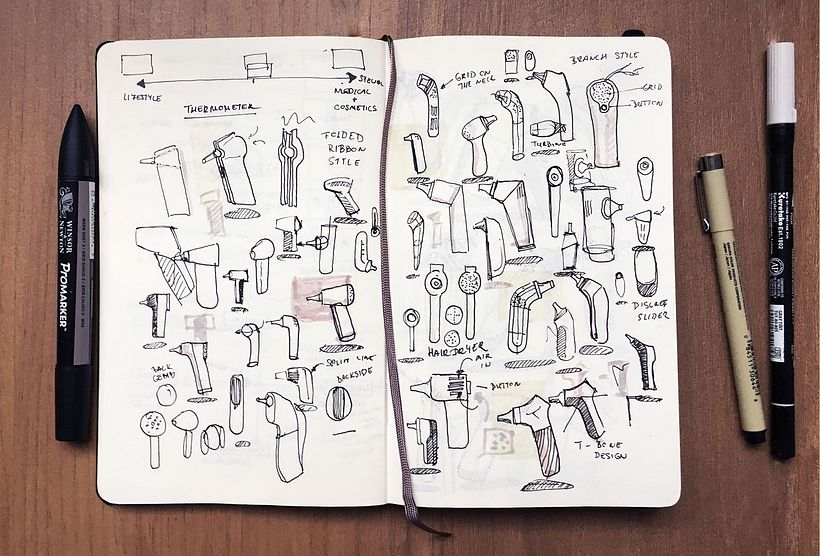 LIFESTYLE
MEDICAL
+
COSMETICS
THERMOMETER
FOLDED
RIBBON
STYLE
SPLIT LINE
BACKSIDE
BACK
GRID ON
THE NECK
BRANCH STYLE
GRID
BUTTON
TURBINE
HAIRDRYER
AIR
IN
BUTTON
SLIDER
T-BONE
DESIGN
WINSOR
NEWTON
PROMARKER™
Kuretake Est.1902